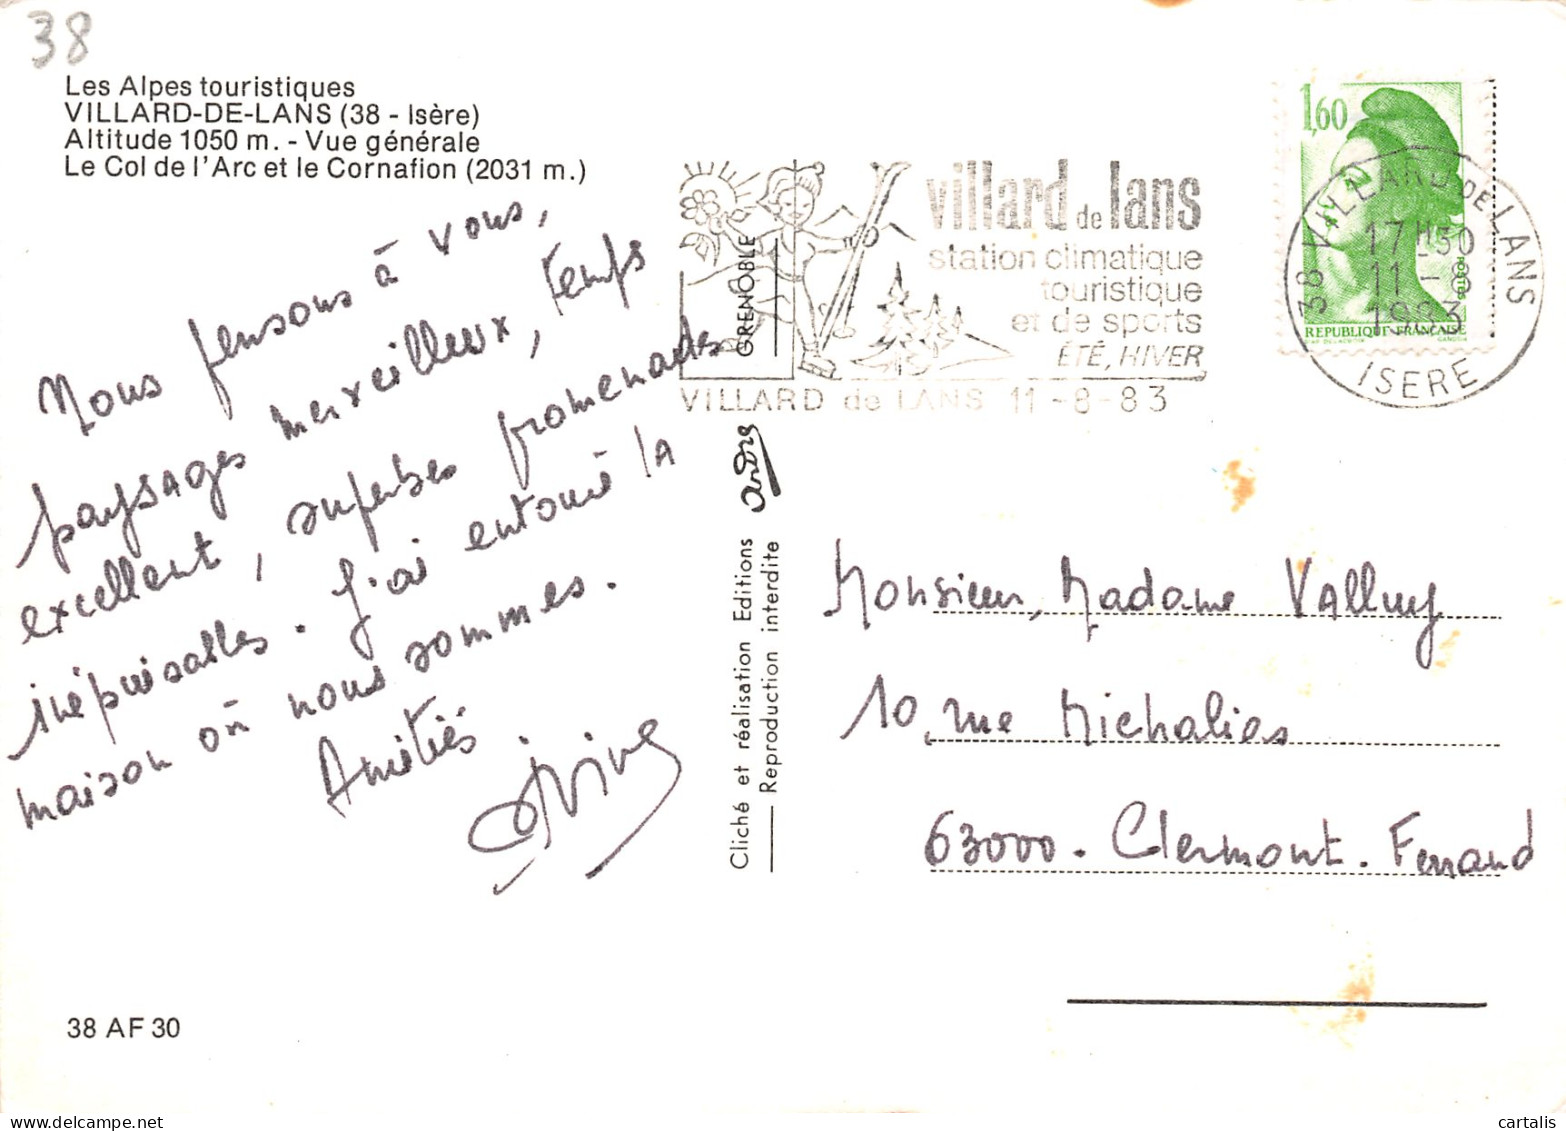 38
Les Alpes touristiques
VILLARD-DE-LANS (38 - Isère)
Altitude 1050 m. - Vue générale
Le Col de l'Arc et le Cornafion (2031 m.)
Nous pensons à vous,
paysages merveilleux, temps
excellent, superbes promenades
inépuisables. J'ai entouré la
maison où nous sommes.
Amitiés.
38 AF 30
GRENOBLE
andré
Cliché et réalisation Editions
Reproduction interdite
villard de lans
station climatique
touristique
et de sports
ÉTÉ, HIVER
VILLARD de LANS 11-8-83
1,60
POSTES
REPUBLIQUE FRANÇAISE
GANDON
38 VILLARD DE LANS
17H30
11-8
1983
ISERE
Monsieur, Madame Valluy
10, rue Michalias
63000. Clermont. Ferrand
cartalis